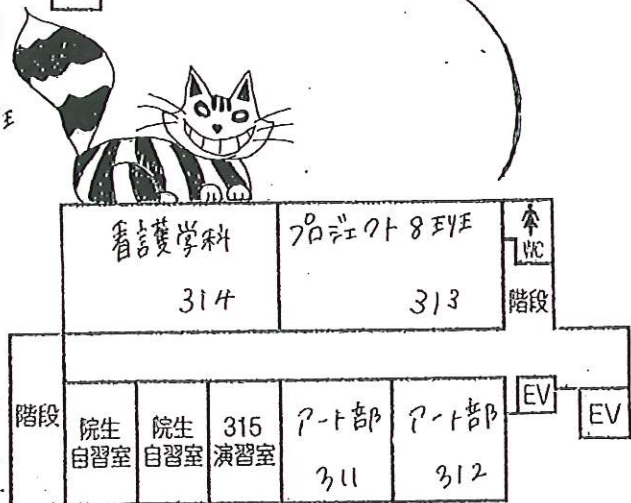 看護学科
314
プロジェクト8王YE
313
WC
階段
階段
院生
自習室
院生
自習室
315
演習室
アート部
311
アート部
312
EV
EV